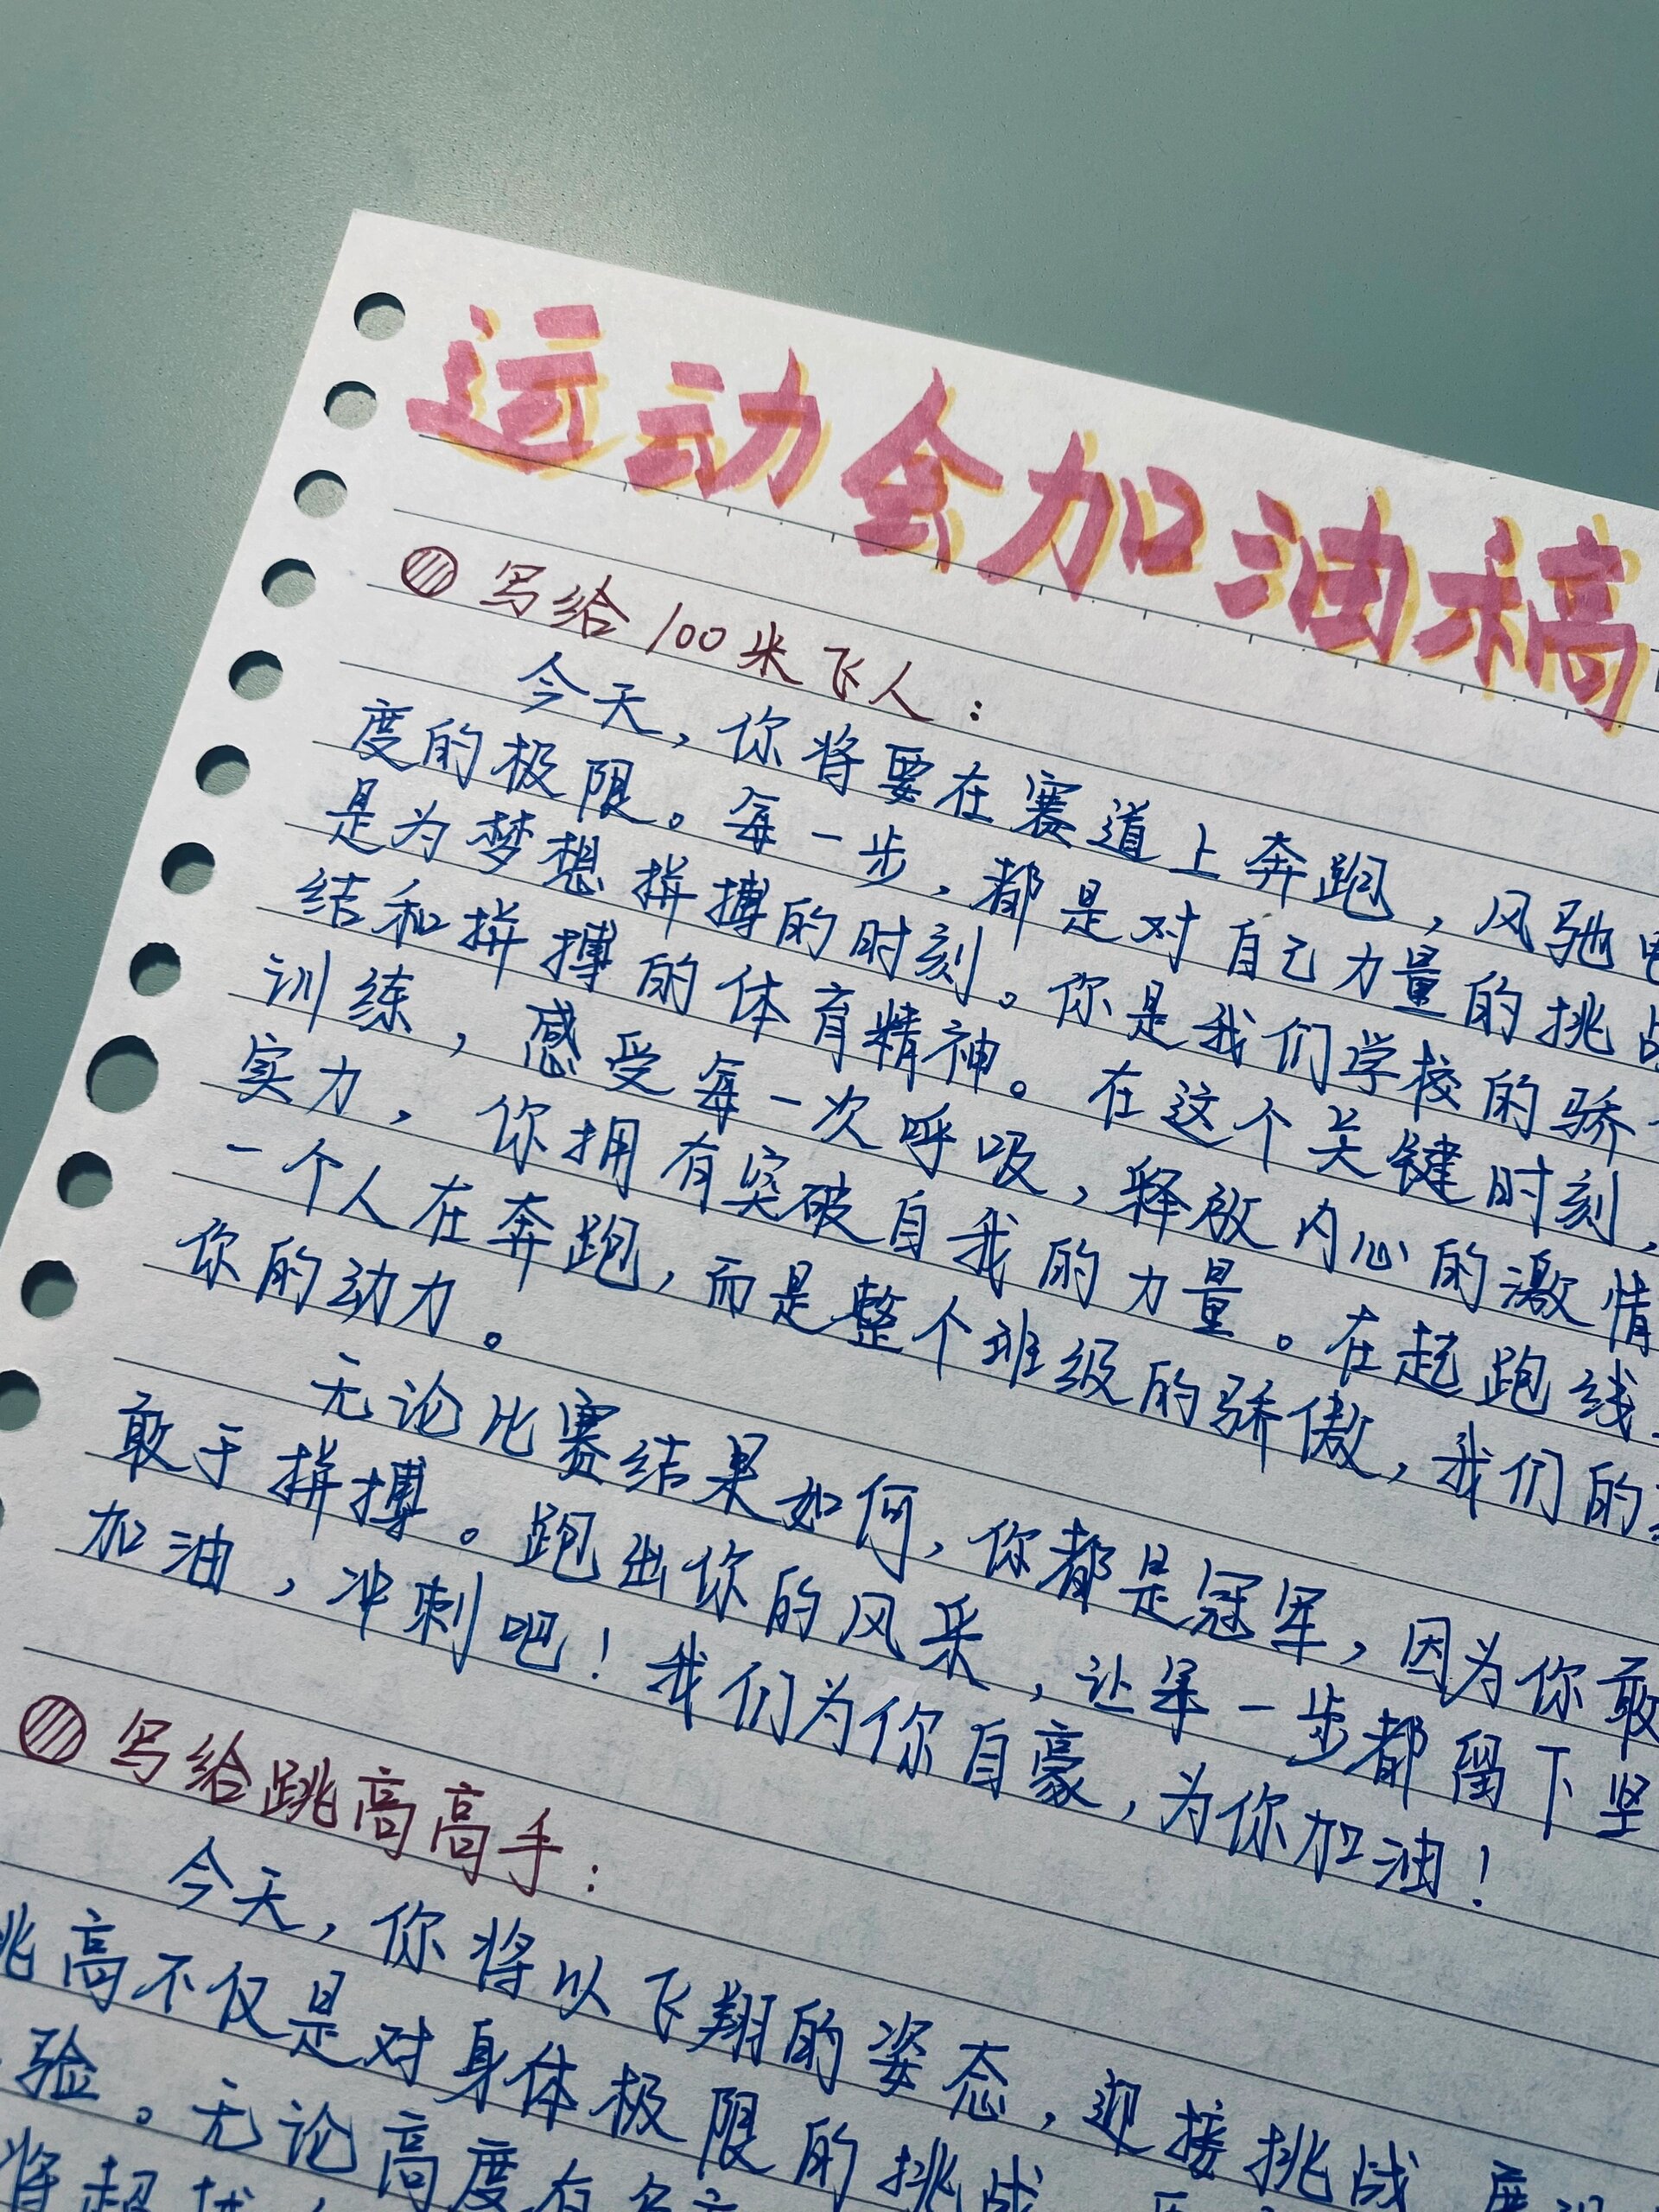 运动会加油稿
写给100米飞人：
今天，你将要在赛道上奔跑，风驰电
度的极限。每一步，都是对自己力量的挑战
是为梦想拼搏的时刻。你是我们学校的骄
结和拼搏的体育精神。在这个关键时刻，
训练，感受每一次呼吸，释放内心的激情
实力，你拥有突破自我的力量。在起跑线
一个人在奔跑，而是整个班级的骄傲，我们的
你的动力。
无论比赛结果如何，你都是冠军，因为你敢
敢于拼搏。跑出你的风采，让每一步都留下坚
加油，冲刺吧！我们为你自豪，为你加油！
写给跳高高手：
今天，你将以飞翔的姿态，迎接挑战
跳高不仅是对身体极限的挑战
验。无论高度有多
将超越